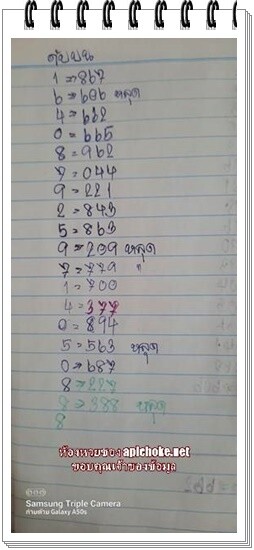 ดับบน
1 => 867
6 => 606 หลุด
4 = 662
0 = 665
8 = 962
7 = 044
9 = 221
2 = 843
5 = 863
9 = 209 หลุด
7 = 779 "
1 = 700
4 = 377
0 = 894
5 = 563 หลุด
0 => 687
8 = 227
8 => 388 หลุด
8
ห้องหวยซอง apichoke.net
ขอบคุณเจ้าของข้อมูล
Samsung Triple Camera
ถ่ายด้วย Galaxy A50s